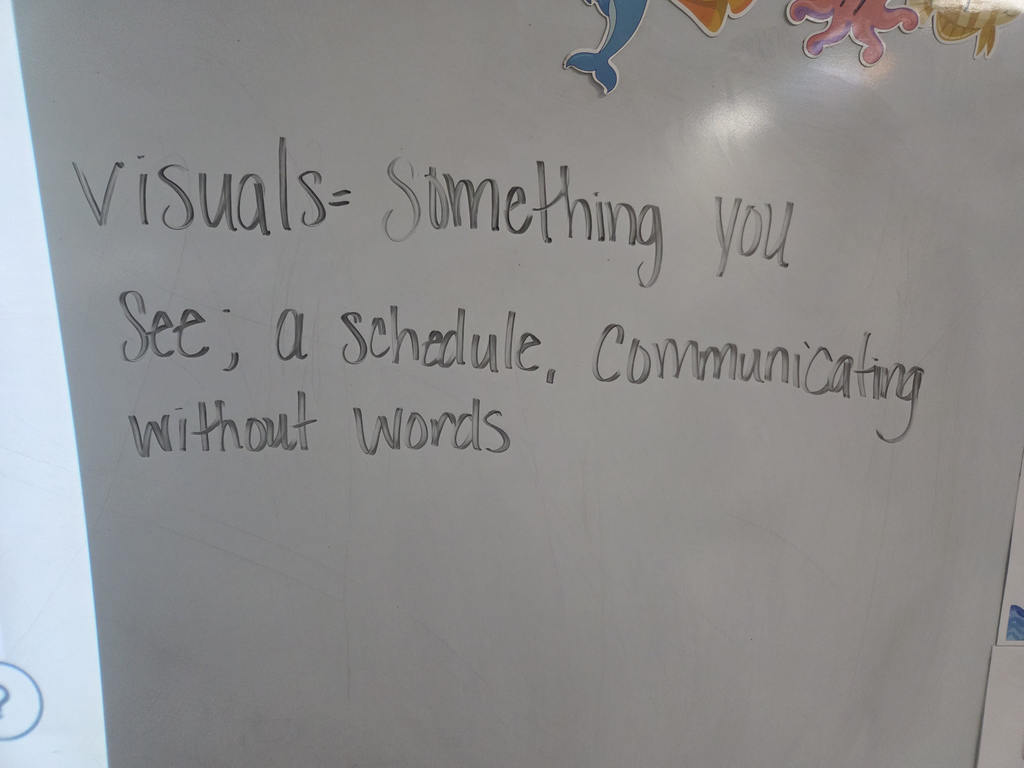 visuals= Something you
See; a schedule, Communicating
without words
?